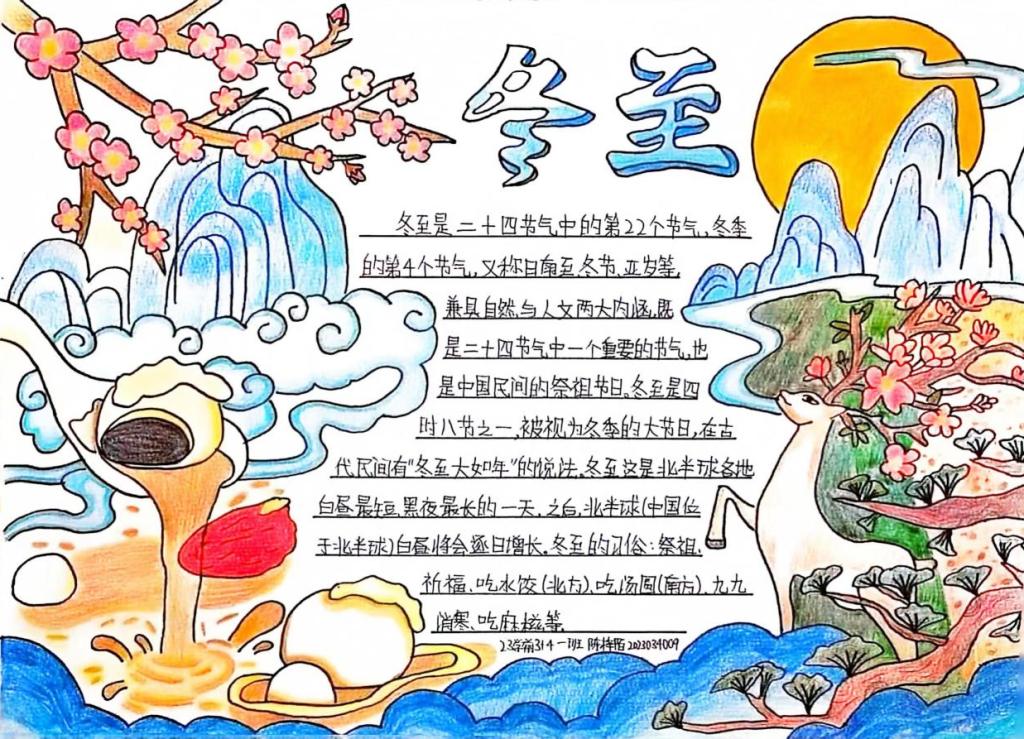 冬至
冬至是二十四节气中的第22个节气,冬季
的第4个节气,又称日南至、冬节、亚岁等,
兼具自然与人文两大内涵,既
是二十四节气中一个重要的节气,也
是中国民间的祭祖节日。冬至是四
时八节之一,被视为冬季的大节日,在古
代民间有"冬至大如年"的说法。冬至这是北半球各地
白昼最短、黑夜最长的一天。之后,北半球(中国位
于北半球)白昼将会逐日增长。冬至的习俗:祭祖、
祈福、吃水饺(北方)、吃汤圆(南方)、九九
消寒、吃麻糍等
一班 2023034009